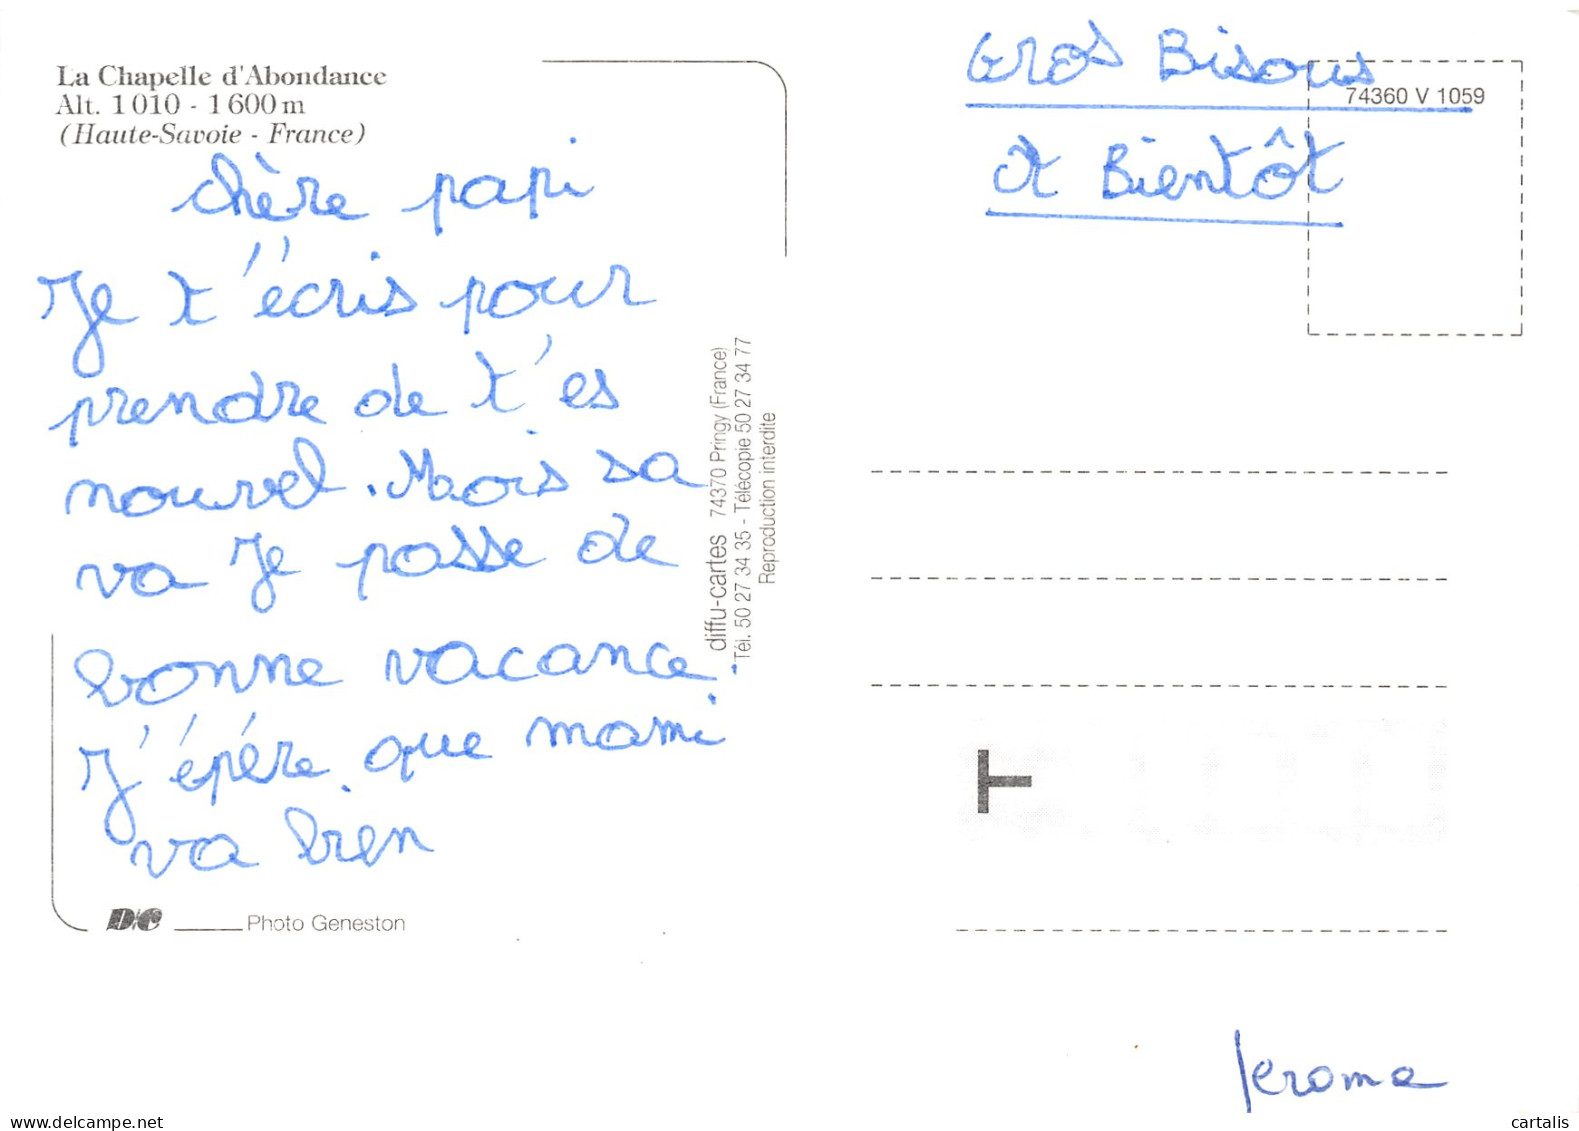 La Chapelle d'Abondance
Alt. 1010 - 1600 m
(Haute-Savoie - France)
chère papi
Je t'écris pour
prendre de t'es
nouvel. Mais sa
va Je passe de
bonne vacance.
J'épére que mami
va bien
D/C Photo Geneston
diffu-cartes 74370 Pringy (France)
Tél. 50 27 34 35 - Télécopie 50 27 34 77
Reproduction interdite
Gros Bisous
74360 V 1059
et Bientôt
Jerome
delcampe.net
cartalis